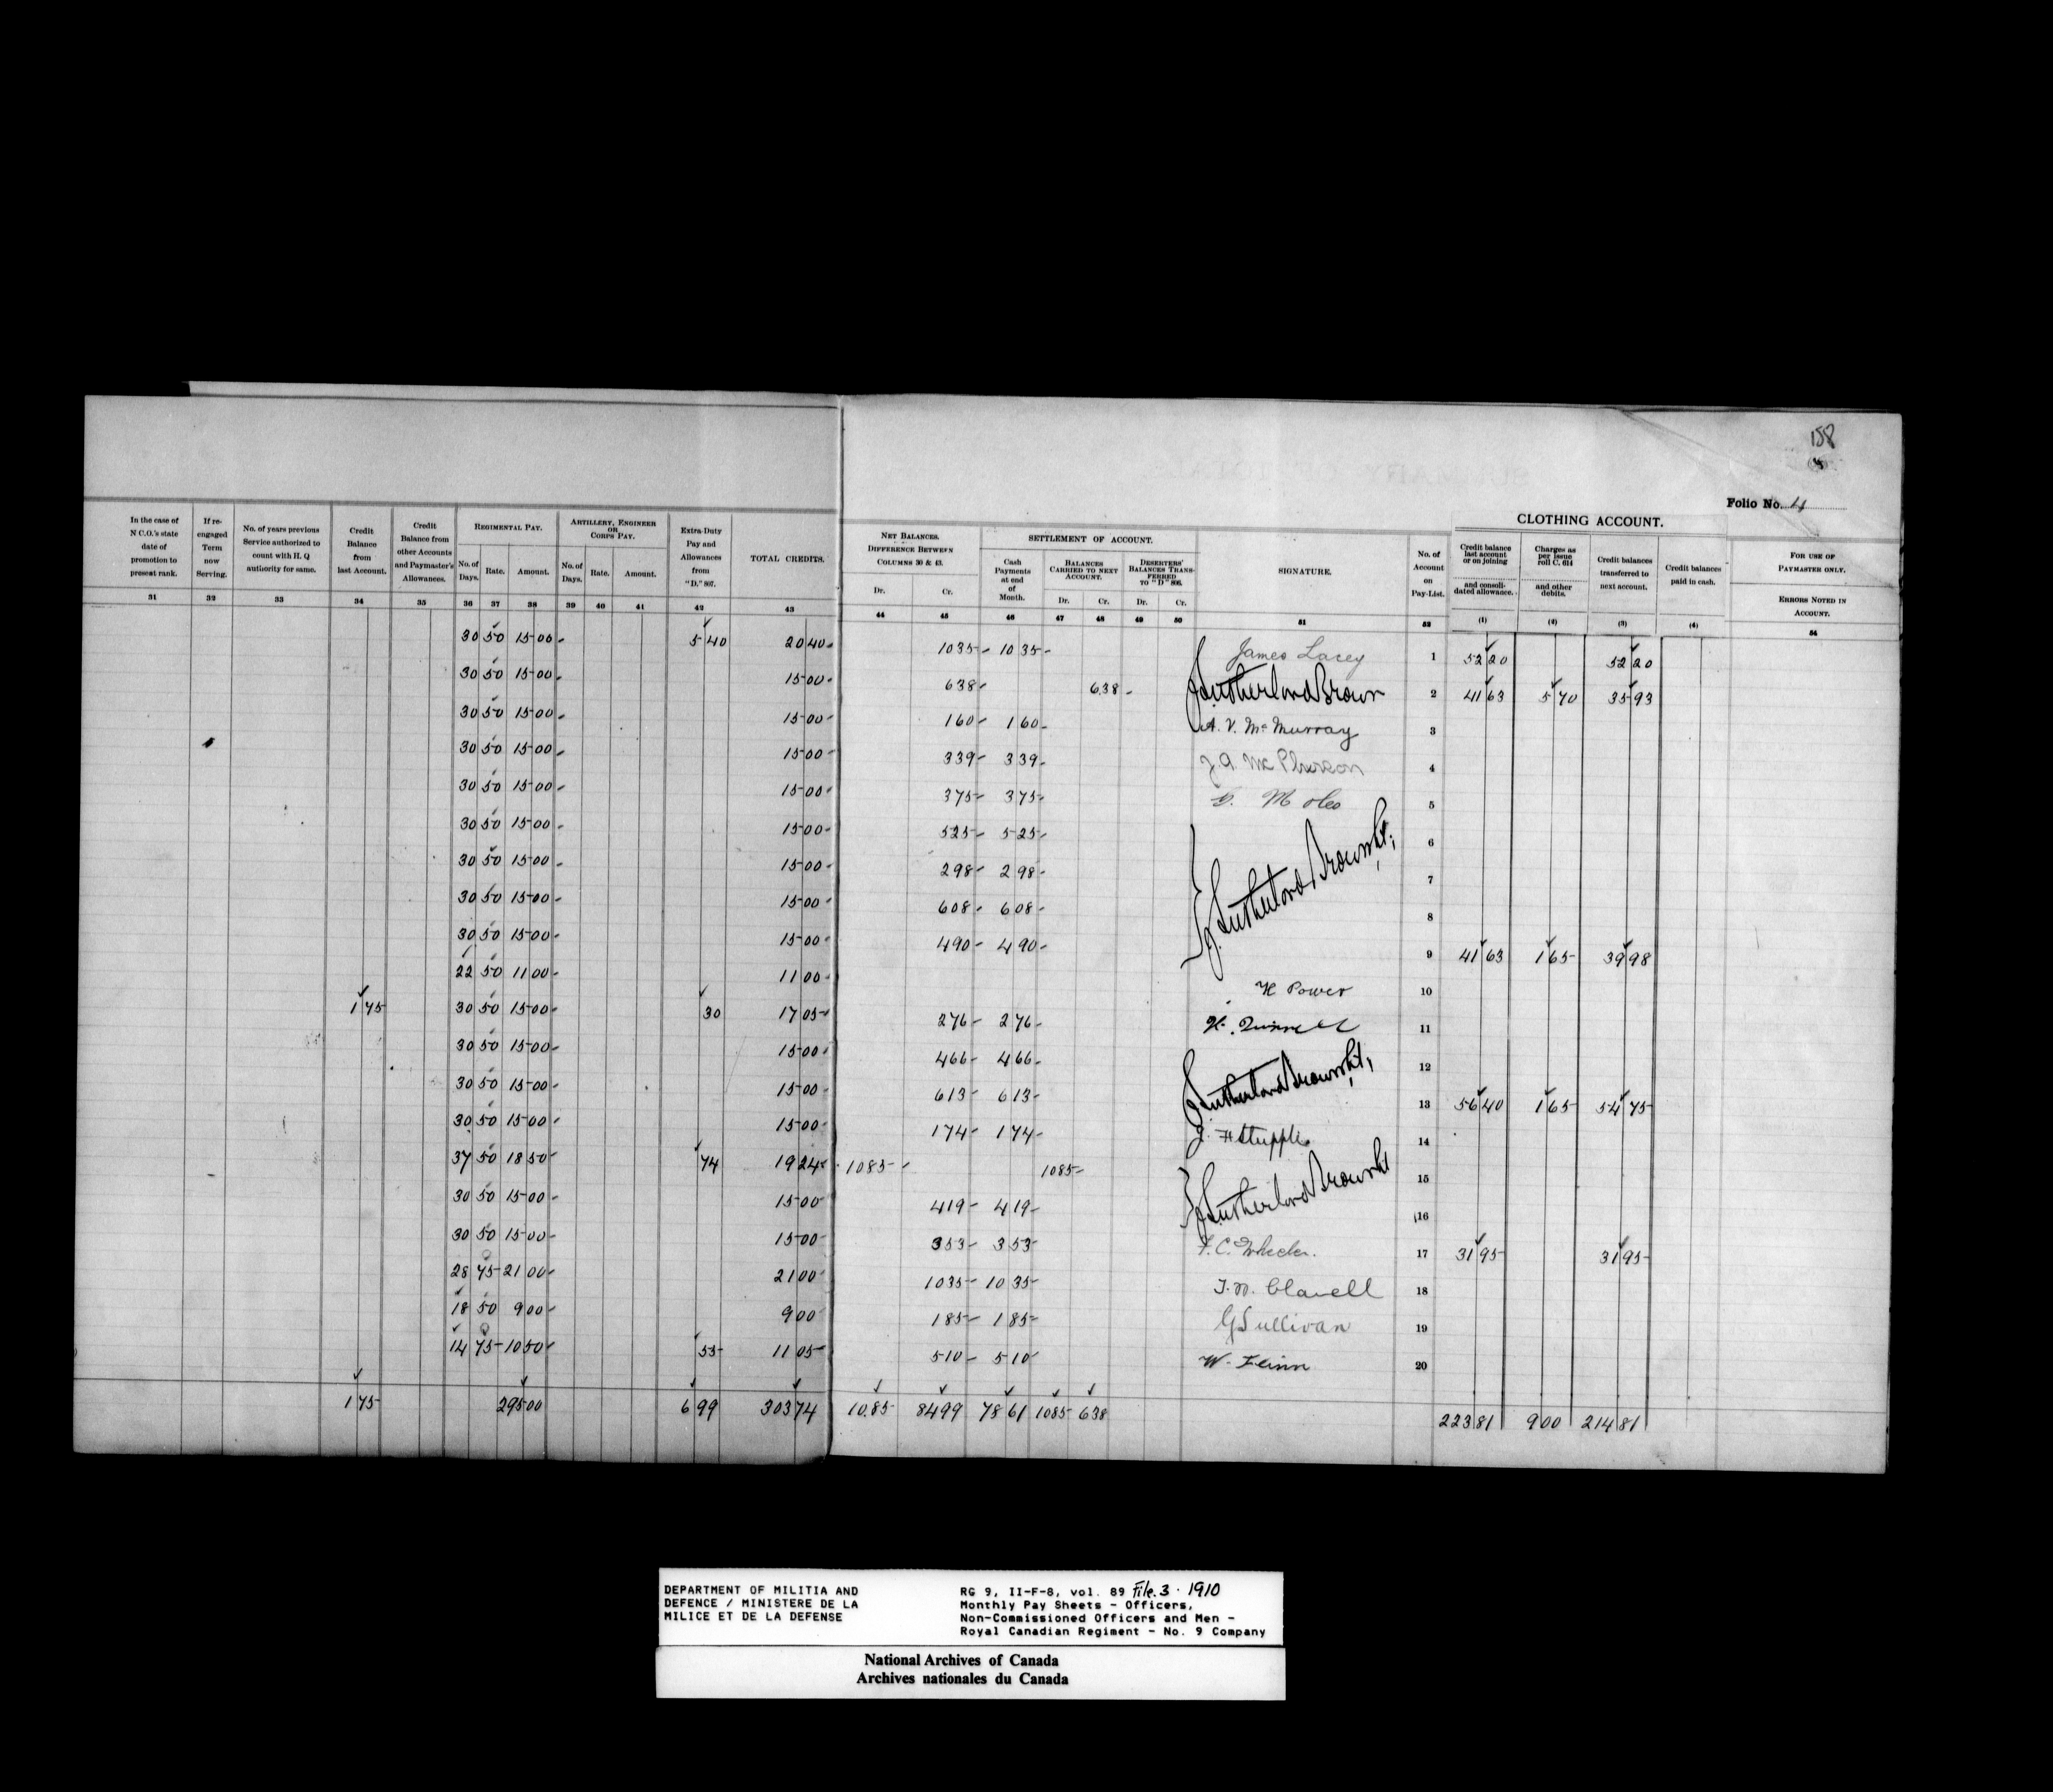 158
Folio No. 4
CLOTHING ACCOUNT.
In the case of N C.O.'s state date of promotion to present rank.
If re-engaged Term now Serving.
No. of years previous Service authorized to count with H. Q authority for same.
Credit Balance from last Account.
Credit Balance from other Accounts and Paymaster's Allowances.
REGIMENTAL PAY.
No. of Days. Rate. Amount.
ARTILLERY, ENGINEER OR CORPS PAY.
No. of Days. Rate. Amount.
Extra-Duty Pay and Allowances from "D." 807.
TOTAL CREDITS.
NET BALANCES. DIFFERENCE BETWEEN COLUMNS 30 & 43.
Dr. Cr.
SETTLEMENT OF ACCOUNT.
Cash Payments at end of Month.
BALANCES CARRIED TO NEXT ACCOUNT.
Dr. Cr.
DESERTERS' BALANCES TRANSFERRED TO "D" 806.
Dr. Cr.
SIGNATURE.
No. of Account on Pay-List.
Credit balance last account or on joining and consolidated allowance.
Charges as per issue roll C. 614 and other debits.
Credit balances transferred to next account.
Credit balances paid in cash.
FOR USE OF PAYMASTER ONLY.
ERRORS NOTED IN ACCOUNT.
31 32 33 34 35 36 37 38 39 40 41 42 43 44 45 46 47 48 49 50 51 52 (1) (2) (3) (4) 54
30 50 15 00 5 40 20 40 10 35 10 35 James Lacey 1 52 20 52 20
30 50 15 00 15 00 6 38 6 38 J. Sutherland Brown 2 41 63 5 70 35 93
30 50 15 00 15 00 1 60 1 60 A. V. McMurray 3
30 50 15 00 15 00 3 39 3 39 J. A. McPherson 4
30 50 15 00 15 00 3 75 3 75 5
30 50 15 00 15 00 5 25 5 25 6
30 50 15 00 15 00 2 98 2 98 J. Sutherland Brown Lt. 7
30 50 15 00 15 00 6 08 6 08 8
30 50 15 00 15 00 4 90 4 90 9 41 63 1 65 39 98
22 50 11 00 11 00 H Power 10
1 75 30 50 15 00 30 17 05 2 76 2 76 11
30 50 15 00 15 00 4 66 4 66 12
30 50 15 00 15 00 6 13 6 13 J. Sutherland Brown Lt. 13 56 40 1 65 54 75
30 50 15 00 15 00 1 74 1 74 14
37 50 18 50 74 19 24 10 85 10 85 15
30 50 15 00 15 00 4 19 4 19 J. Sutherland Brown Lt 16
30 50 15 00 15 00 3 53 3 53 F. C. Wheeler. 17 31 95 31 95
28 75 21 00 21 00 10 35 10 35 T. W. Clavell 18
18 50 9 00 9 00 1 85 1 85 G Sullivan 19
14 75 10 50 55 11 05 5 10 5 10 W. Flinn 20
1 75 295 00 6 99 303 74 10.85 84 99 78 61 10 85 6 38 223 81 9 00 214 81
DEPARTMENT OF MILITIA AND
DEFENCE / MINISTERE DE LA
MILICE ET DE LA DEFENSE
RG 9, II-F-8, vol. 89 File. 3 · 1910
Monthly Pay Sheets - Officers,
Non-Commissioned Officers and Men -
Royal Canadian Regiment - No. 9 Company
National Archives of Canada
Archives nationales du Canada